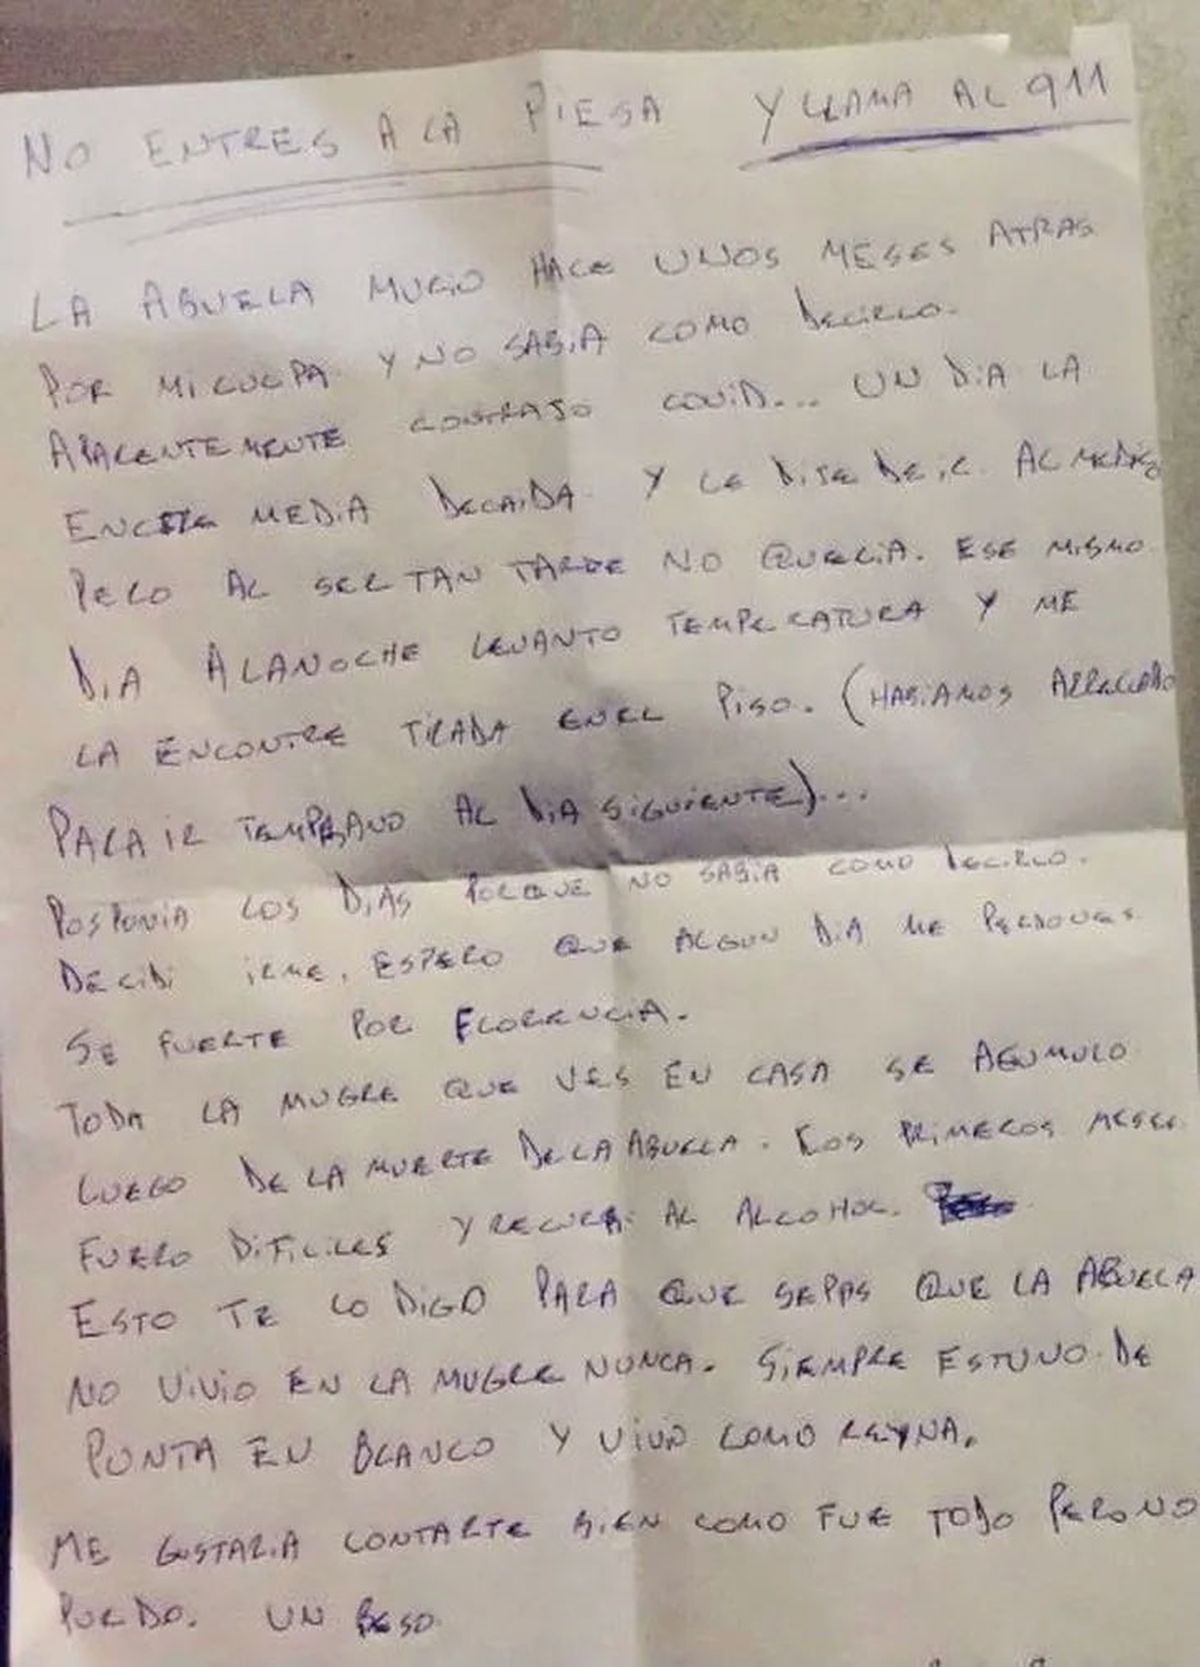 NO ENTRES A LA PIESA Y LLAMA AL 911
LA ABUELA MURIO HACE UNOS MESES ATRAS
POR MI CULPA Y NO SABIA COMO DECIRLO.
APARENTEMENTE CONTRAJO COVID... UN DIA LA
MEDIA DECAIDA Y LE DIJE DE IR AL MEDICO
PERO AL SER TAN TARDE NO QUERIA. ESE MISMO
DIA A LA NOCHE LEVANTO TEMPERATURA Y ME
LA ENCONTRE TIRADA EN EL PISO. (HABIAMOS ARREGLADO
PARA IR TEMPRANO AL DIA SIGUIENTE)...
POSPONIA LOS DIAS PORQUE NO SABIA COMO DECIRLO.
DECIDI IRME. ESPERO QUE ALGUN DIA ME PERDONES
SE FUERTE POR FLORENCIA.
TODA LA MUGRE QUE VES EN CASA SE AGUMULO
LUEGO DE LA MUERTE DE LA ABUELA. LOS PRIMEROS MESES
FUERO DIFICILES Y RECURRI AL ALCOHOL.
ESTO TE LO DIGO PARA QUE SEPAS QUE LA ABUELA
NO VIVIO EN LA MUGRE NUNCA. SIEMPRE ESTUVO DE
PUNTA EN BLANCO Y VIVIO COMO REYNA.
ME GUSTARIA CONTARTE BIEN COMO FUE TODO PERO NO
PUEDO. UN BESO